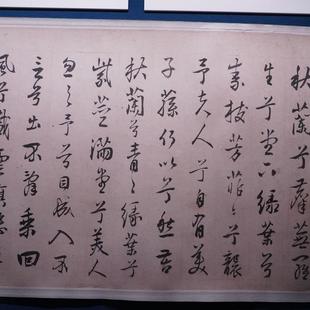 秋蘭兮蘼蕪羅
生兮堂下綠葉兮
素枝芳菲〻兮襲
予夫人兮自有美
子蓀何以兮愁苦
秋蘭兮青〻綠葉兮
紫莖滿堂兮美人
忽予兮目成入不
言兮出不辭乘回
風兮載雲旗悲